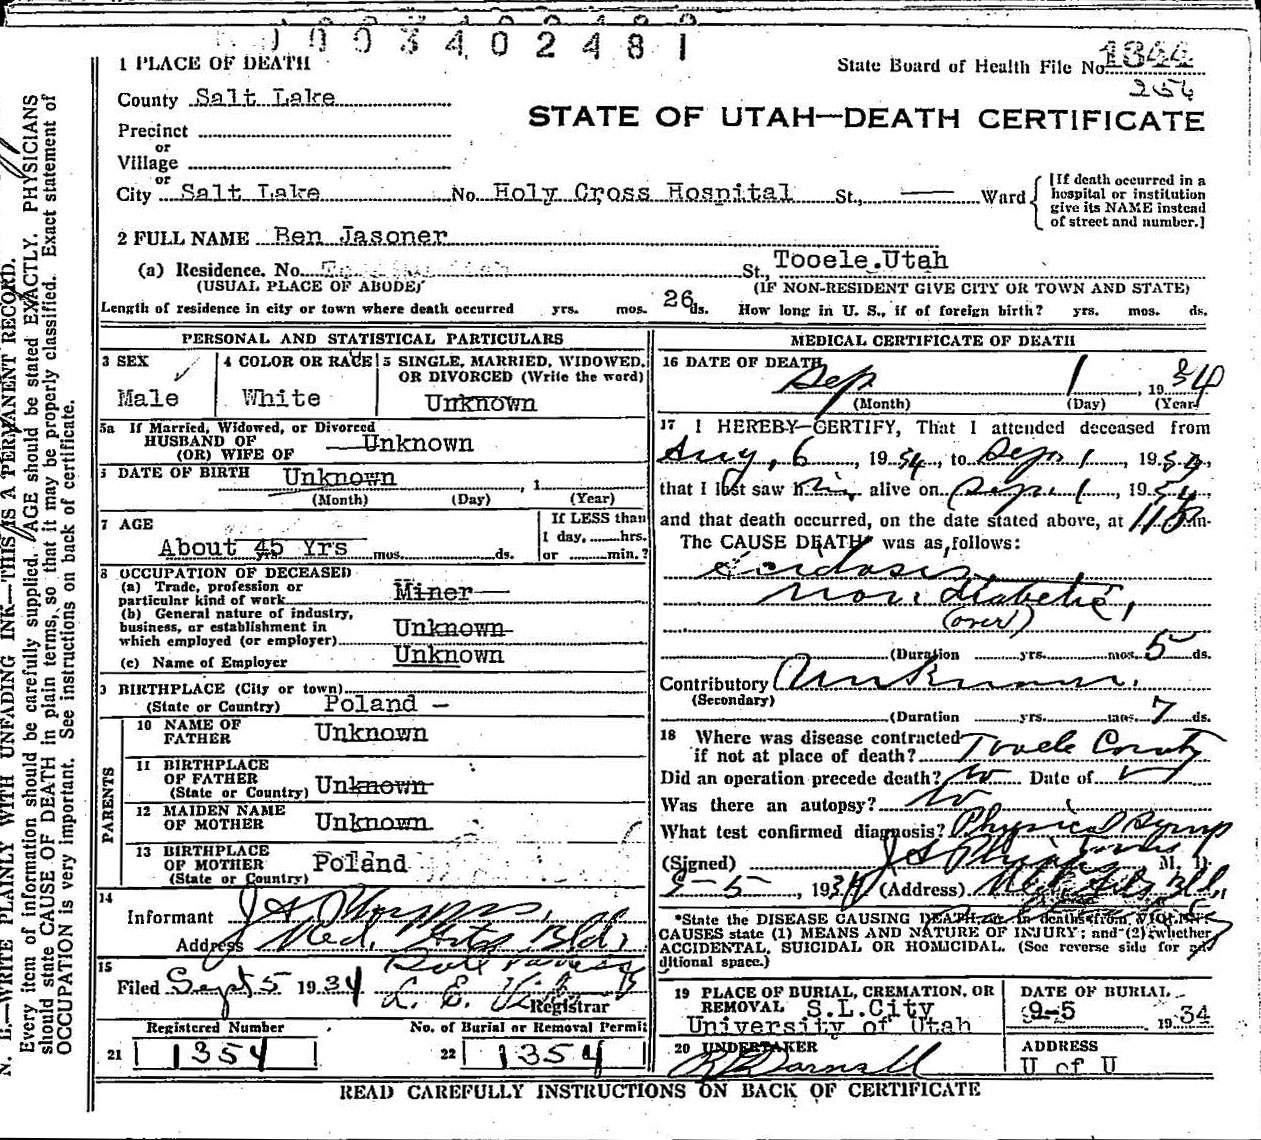 1003402481
1 PLACE OF DEATH
State Board of Health File No. 1344
254
County Salt Lake
STATE OF UTAH—DEATH CERTIFICATE
Precinct
or
Village
or
City Salt Lake No. Holy Cross Hospital St., Ward
[If death occurred in a
hospital or institution
give its NAME instead
of street and number.]
2 FULL NAME Ben Jasoner
(a) Residence. No. St., Tooele.Utah
(USUAL PLACE OF ABODE) (IF NON-RESIDENT GIVE CITY OR TOWN AND STATE)
Length of residence in city or town where death occurred yrs. mos. 26 ds. How long in U. S., if of foreign birth? yrs. mos. ds.
PERSONAL AND STATISTICAL PARTICULARS
3 SEX
Male
4 COLOR OR RACE
White
5 SINGLE, MARRIED, WIDOWED,
OR DIVORCED (Write the word)
Unknown
5a If Married, Widowed, or Divorced
HUSBAND OF
(OR) WIFE OF Unknown
6 DATE OF BIRTH Unknown , 1
(Month) (Day) (Year)
7 AGE
About 45 Yrs mos. ds.
If LESS than
1 day, hrs.
or min.?
8 OCCUPATION OF DECEASED
(a) Trade, profession or
particular kind of work Miner
(b) General nature of industry,
business, or establishment in
which employed (or employer) Unknown
(c) Name of Employer Unknown
9 BIRTHPLACE (City or town)
(State or Country) Poland
PARENTS
10 NAME OF
FATHER Unknown
11 BIRTHPLACE
OF FATHER
(State or Country) Unknown
12 MAIDEN NAME
OF MOTHER Unknown
13 BIRTHPLACE
OF MOTHER
(State or Country) Poland
14
Informant
Address Med. Arts Bld,
15
Filed Sept 5 1934
Registrar
Registered Number
21 1354
No. of Burial or Removal Permit
22 1354
MEDICAL CERTIFICATE OF DEATH
16 DATE OF DEATH
Sep 1, 1934
(Month) (Day) (Year)
17 I HEREBY CERTIFY, That I attended deceased from
Aug, 6, 1934, to Sept 1, 1934,
that I last saw him alive on Sept. 1, 1934
and that death occurred, on the date stated above, at m.
The CAUSE DEATH was as follows:
Acidosis
Non. diabetic,
(over)
(Duration yrs. mos. 5 ds.
Contributory Unknown.
(Secondary)
(Duration yrs. mos. 7 ds.
18 Where was disease contracted
if not at place of death? Tooele County
Did an operation precede death? No Date of
Was there an autopsy? No
What test confirmed diagnosis? Physical Symp
(Signed) M. D.
9-5, 1934 (Address) Med. Arts Bld,
*State the DISEASE CAUSING DEATH, or in deaths from VIOLENT
CAUSES state (1) MEANS AND NATURE OF INJURY; and (2) whether
ACCIDENTAL, SUICIDAL OR HOMICIDAL. (See reverse side for ad
ditional space.)
19 PLACE OF BURIAL, CREMATION, OR
REMOVAL S.L.City
University of Utah
DATE OF BURIAL
9-5 1934
20 UNDERTAKER
Darnell
ADDRESS
U of U
READ CAREFULLY INSTRUCTIONS ON BACK OF CERTIFICATE
N. B.—WRITE PLAINLY WITH UNFADING INK—THIS IS A PERMANENT RECORD.
Every item of information should be carefully supplied. AGE should be stated EXACTLY. PHYSICIANS
should state CAUSE OF DEATH in plain terms, so that it may be properly classified. Exact statement of
OCCUPATION is very important. See instructions on back of certificate.